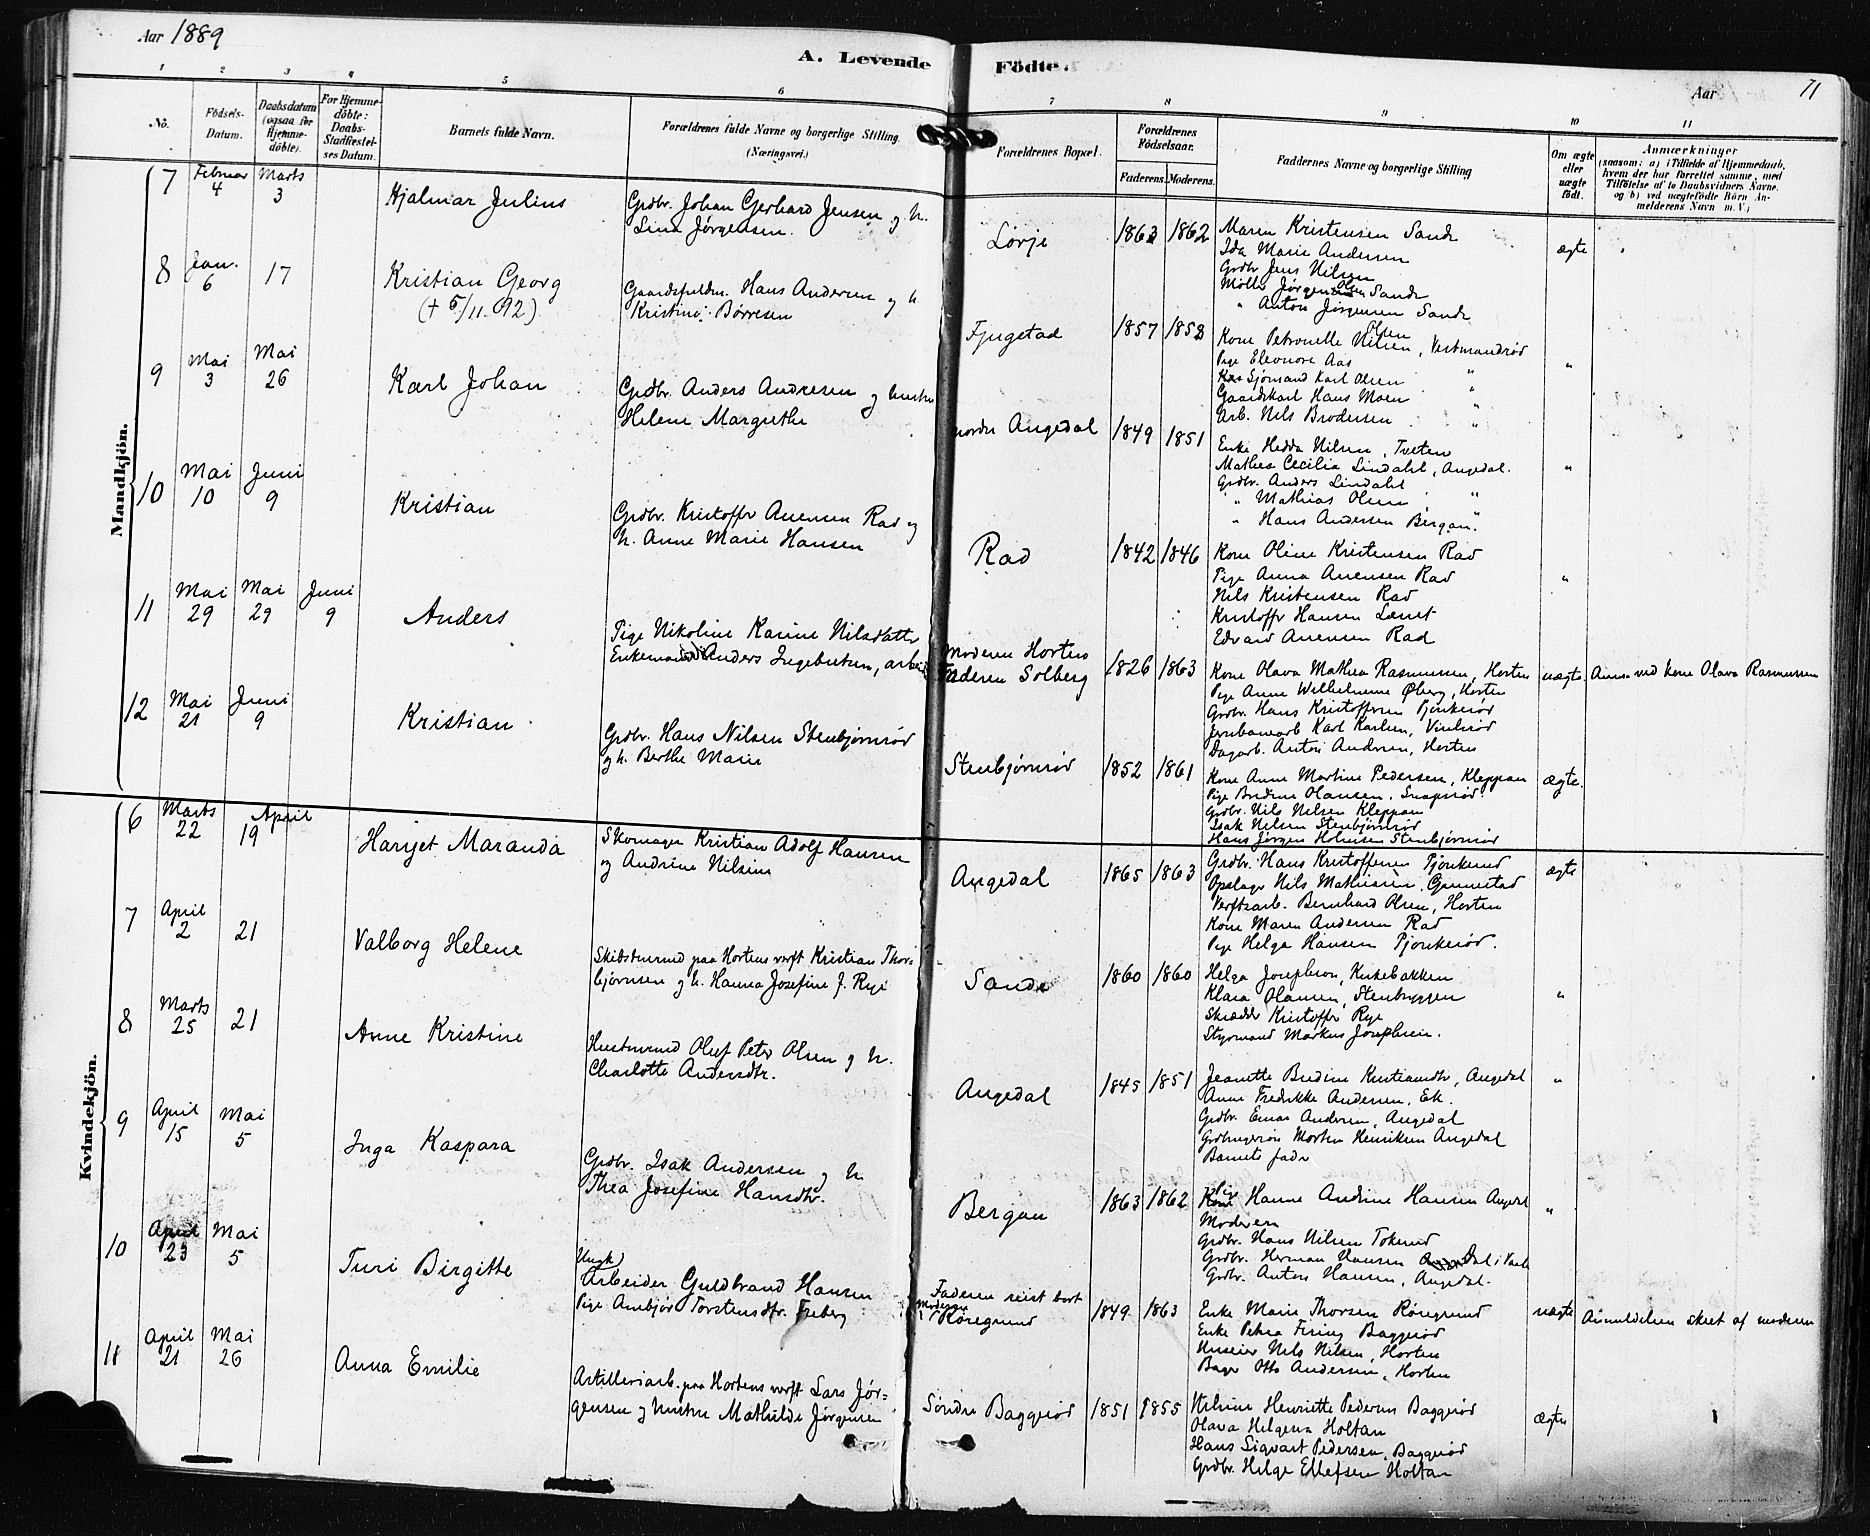 Aar 1889
A. Levende Födte.
Aar
71
1 2 3 4 5 6 7 8 9 10 11
No.
Födsels-
Datum.
Daabsdatum
(ogsaa for
Hjemme-
döbte).
For Hjemme-
döbte:
Daabs-
Stadfæstel-
ses Datum.
Barnets fulde Navn.
Forældrenes fulde Navne og borgerlige Stilling.
(Næringsvei.)
Forældrenes Bopæl.
Forældrenes
Födselsaar.
Faderens. Moderens.
Faddernes Navne og borgerlige Stilling
Om ægte
eller
uægte
födt.
Anmærkninger
(saasom: a) i Tilfælde af Hjemmedaab,
hvem der har forrettet samme, med
Tilföielse af to Daabsvidners Navne.
og b) ved uægtefödte Börn An-
melderens Navn m. V.)
Mandkjön.
7 Februar 4 Marts 3 Hjalmar Julius
Grdbr. Johan Gerhard Jensen og h.
Lina Jørgensen.
Lørje 1863 1862
Maren Kristensen Sande
Ida Marie Andersen
Grdbr Jens Nilsen
Møller Jørgen Olsen Sande
" Anton Jørgensen Sande
ægte
8 Jan. 6 17 Kristian Georg
(+ 5/11. 92)
Gaardsfuldm. Hans Andersen og h
Kristine Børresen
Fjugstad 1857 1858
Kone Petronelle Olsen, Vestmandrød
Pige Eleonore Aas "
Sjømand Karl Olsen "
Gaardskarl Hans Moen "
Arb. Nils Brodersen "
"
9 Mai 3 Mai 26 Karl Johan
Grdbr. Anders Andresen og hustru
Helene Margrethe
nordre Angedal 1849 1851
Enke Hedda Nilsen, Tveten
Mathea Cecilia Lindahl, Angedal.
Grdbr. Anders Lindahl "
" Mathias Olsen "
" Hans Andersen Bergan.
"
10 Mai 10 Juni 9 Kristian
Grdbr. Kristoffer Arensen Rad og
h. Anne Marie Hansen
Rad 1842 1846
Kone Oline Kristensen Rad
Pige Anna Arensen Rad
Nils Kristensen Rad
Kristoffer Hansen
Edvard Arensen Rad
"
11 Mai 29 Mai 29 Juni 9 Anders
Pige Nikoline Karine Nilsdatter
Enkemand Anders Ingebretsen, arbeid
Moderen Horten
Faderen Solberg 1826 1863
Kone Olava Mathea Rasmussen, Horten
Pige Anne Wilhelmine Øberg, Horten
Grdbr. Hans Kristoffersen Pjonkerød
Jernbanearb Karl Karlsen,
Dagarb. Anton Andersen, Horten
uægte
Anm. ved kone Olava Rasmussen
12 Mai 21 Juni 9 Kristian
Grdbr. Hans Nilsen Stenbjørnrød
og h. Berthe Marie
Stenbjørnrød 1852 1861
Kone Anne Martine Pedersen, Kleppan
Pige Bredine Olausen, Snapsrød
Grdbr. Nils Nilsen Kleppan
Isak Nilsen Stenbjørnrød
Hans Jørgen Holmsen Stenbjørnrød
ægte.
Kvindekjön.
6 Marts 22 April 19 Harjet Maranda
Skomager Kristian Adolf Hansen
og Andrine Nilsine
Angedal 1865 1863
Grdbr. Hans Kristoffersen Pjonkerød
Opslager Nils Mathiesen, Gannestad
Verftsarb. Bernhard Olsen, Horten
Kone Maren Andersen Rad
Pige Helga Hansen Pjonkerød.
ægte
7 April 2 21 Valborg Helene
Skibstømmerd paa Hortens verft Kristian Thor-
bjørnsen og h. Hanna Josefine J. Rye
Sande 1860 1860
Helga Josephsen, Kirkebakken
Klara Olausen, Stenbryggen
Skrædder Kristoffer Rye
Styrmand Markus Josephsen.
"
8 Marts 25 21 Anne Kristine
Husmand Oluf Peter Olsen og h.
Charlotte Andersdtr.
Angedal 1845 1851
Jeanette Bredine Kristiansdtr, Angedal
Anne Fredrikke Andersen, Ek.
Grdbr. Einar Andersen, Angedal
Grdbrugersøn Morten Henriksen Angedal
Barnets fader
"
9 April 15 Mai 5 Inga Kaspara
Grdbr. Isak Andersen og h
Thea Josefine Hansdtr.
Bergan 1863 1862
Pige Hanne Andrine Hansen Angedal
Moderen
Grdbr. Hans Nilsen Tokerud
Grdbr. Herman Hansen Dal i Vaale
Grdbr. Anton Hansen, Angedal.
"
10 April 23 Mai 5 Turi Birgitte
Ungk
Arbeider Guldbrand Hansen
Pige Ambjør Torstensdtr. Freberg
Faderen reist bort
Moderen Røregrund 1849 1863
Enke Marie Thorsen Røregrund
Enke Petra Firing Baggerød
Huseier Nils Nilsen, Horten
Bager Otto Andersen, Horten
uægte
Anmeldelsen skeet af moderen
11 April 21 Mai 26 Anna Emilie
Artilleriarb. paa Hortens verft Lars Jør-
gensen og hustru Mathilde Jørgensen
Søndre Baggerød 1851 1855
Nilsine Henriette Pedersen Baggerød
Olava Helgesen Holtan
Hans Sigvart Pedersen, Baggerød
Grdbr. Helge Ellefsen Holtan
ægte